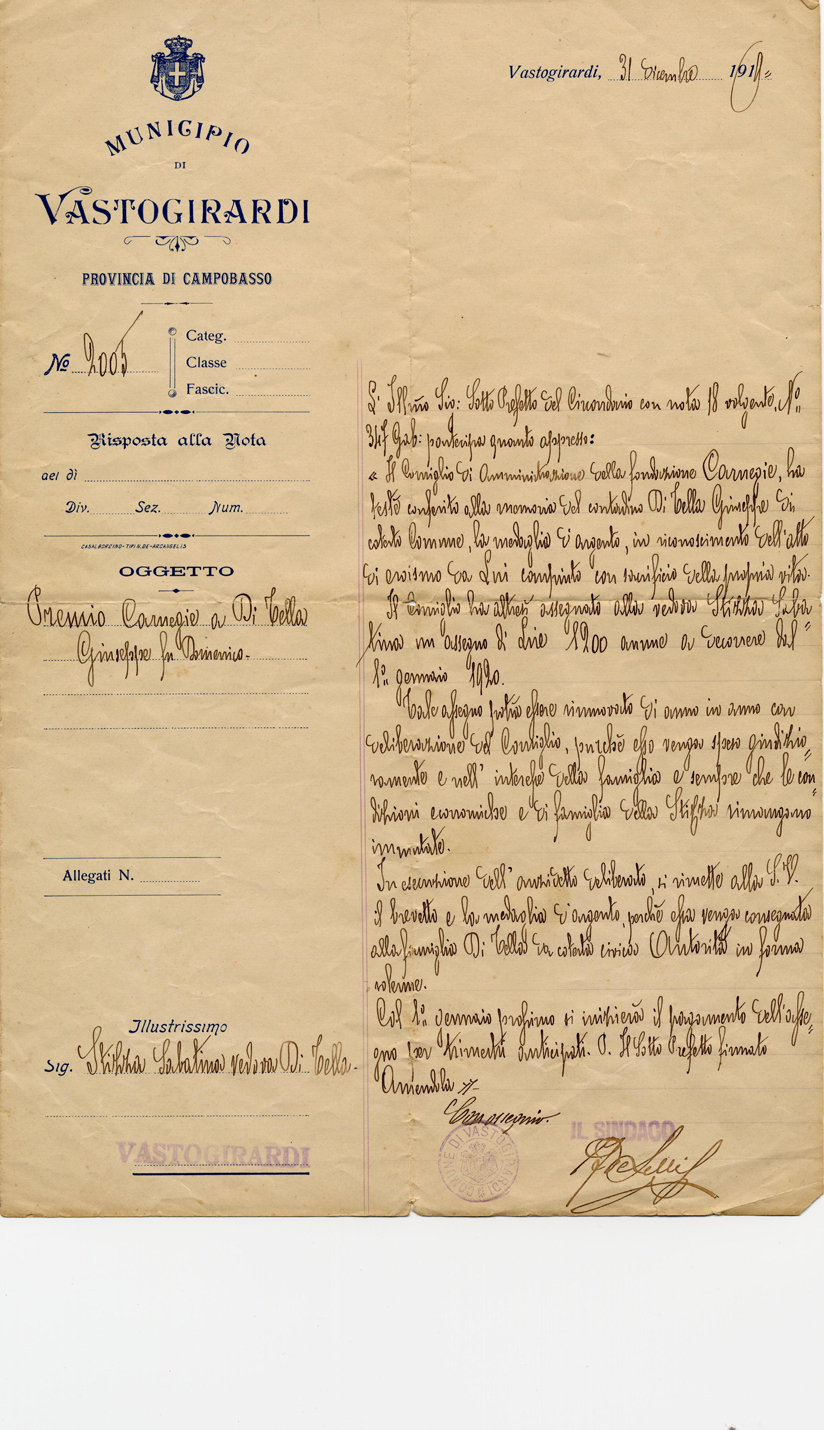 MUNICIPIO
DI
VASTOGIRARDI
PROVINCIA DI CAMPOBASSO
Nº 2005
Categ.
Classe
Fascic.
Risposta alla Nota
del dì
Div. Sez. Num.
OGGETTO
Premio Carnegie a Di Tella
Giuseppe fu Domenico.
Allegati N.
Illustrissimo
Sig. Stizza Sabatina vedova Di Tella
VASTOGIRARDI
Vastogirardi, 31 Dicembre 1919
L' Ill.mo Sig: Sotto Prefetto del Circondario con nota 18 volgente, Nº
347 Gab: partecipa quanto appresso:
« Il Consiglio di Amministrazione della fondazione Carnegie, ha
testè conferito alla memoria del contadino Di Tella Giuseppe di
cotesto Comune, la medaglia d'argento, in riconoscimento dell'atto
di eroismo da Lui compiuto con sacrificio della propria vita.
Il Consiglio ha altresì assegnato alla vedova Stizza Saba=
tina un assegno di Lire 1200 annue a decorrere dal
1º gennaio 1920.
Tale assegno potrà essere rinnovato di anno in anno con
deliberazione del Consiglio, purchè esso venga speso giudizio=
samente e nell' interesse della famiglia e sempre che le con=
dizioni economiche e di famiglia della Stizza rimangano
immutate.
In esecuzione dell' anzidetto deliberato, si rimette alla S.V.
il brevetto e la medaglia d'argento, perchè essa venga consegnata
alla famiglia Di Tella da cotesta civica Autorità in forma
solenne.
Col 1º gennaio prossimo si inizierà il pagamento dell'asse=
gno per trimestri anticipati. Il Sotto Prefetto firmato
Amendola
Con ossequio.
COMUNE DI VASTOGIRARDI
IL SINDACO